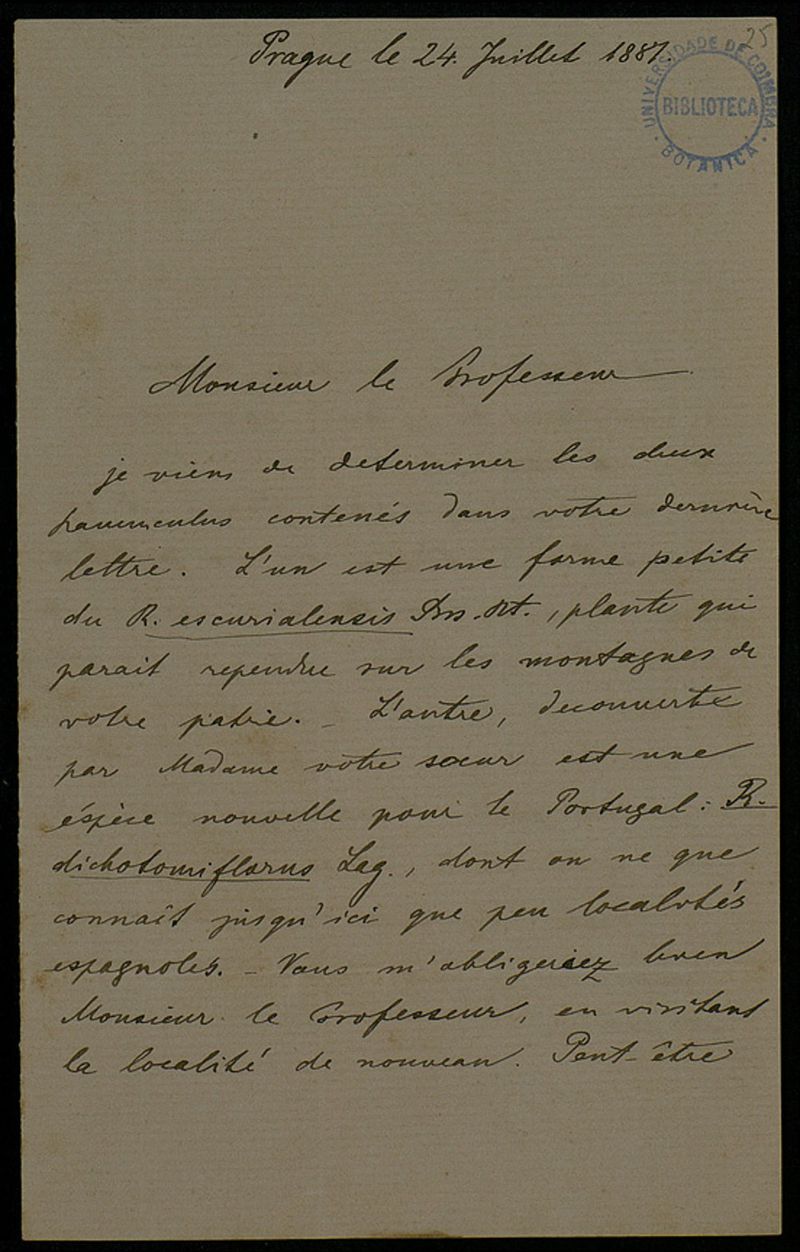 25
UNIVERSIDADE DE COIMBRA
BIBLIOTECA
BOTANICA
Prague le 24. Juillet 1881.
Monsieur le Professeur
je viens de determiner les deux
contenés dans votre dernière
lettre. L'un est une forme petite
du R. escurialensis Bss. Rt., plante qui
parait rependue sur les montagnes de
votre patrie. _ L'autre, decouverte
par Madame votre sœur est une
éspèce nouvelle pour le Portugal: R.
dichotomiflorus Lag., dont on ne que
connaît jusqu'ici que peu localités
espagnoles. _ Vous m'obligeriez bien
Monsieur le Professeur, en visitant
la localité de nouveau. Peut-être